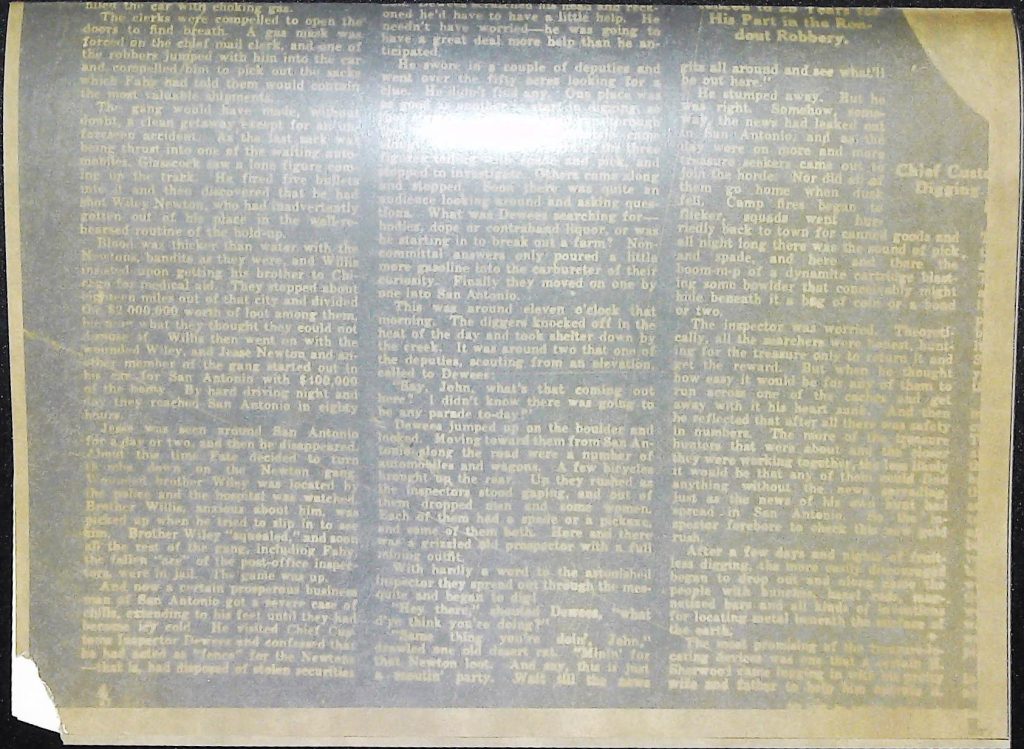 filled the car with choking gas.
The clerks were compelled to open the
doors to find breath. A gas mask was
forced on the chief mail clerk, and one of
the robbers jumped with him into the car
and compelled him to pick out the sacks
which Faby had told them would contain
the most valuable shipments.
The gang would have made, without
doubt, a clean getaway except for an un-
foreseen accident. As the last sack was
being thrust into one of the waiting auto-
mobiles, Glasscock saw a long figure com-
ing up the track. He fired five bullets
into it and then discovered that he had
shot Wiley Newton, who had inadvertently
gotten out of his place in the well-re-
hearsed routine of the hold-up.
Blood was thicker than water with the
Newtons, bandits as they were, and Willis
insisted upon getting his brother to Chi-
cago for medical aid. They stopped about
miles out of that city and divided
the $2,000,000 worth of loot among them,
what they thought they could not
dispose of. Willis then went on with the
wounded Wiley, and Jesse Newton and an-
other member of the gang started out in
car for San Antonio with $400,000
of the bonds. By hard driving night and
day they reached San Antonio in eighty
hours.
Jesse was seen around San Antonio
for a day or two, and then he disappeared.
About this time Fate decided to turn
thumbs down on the Newton gang.
Wounded brother Wiley was located by
the police and the hospital was watched.
Brother Willis, anxious about him, was
picked up when he tried to slip in to see
him. Brother Wiley "squealed," and soon
all the rest of the gang, including Faby,
the fallen "ace" of the post-office inspec-
tors, were in jail. The game was up.
And now a certain prosperous business
man of San Antonio got a severe case of
chills, extending to his feet until they had
become icy cold. He visited Chief Cus-
toms Inspector Dewees and confessed that
he had acted as "fence" for the Newtons
—that is, had disposed of stolen securities
his head and reck-
oned he'd have to have a little help. He
needn't have worried—he was going to
have a great deal more help than he an-
ticipated.
He swore in a couple of deputies and
went over the fifty acres looking for a
clue. He didn't find any. One place was
as good as another to start in digging, so
through
came
the three
figures and pick, and
stopped to investigate. Others came along
and stopped. Soon there was quite an
audience looking around and asking ques-
tions. What was Dewees searching for—
bodies, dope or contraband liquor, or was
he starting in to break out a farm? Non-
committal answers only poured a little
more gasoline into the carbureter of their
curiosity. Finally they moved on one by
one into San Antonio.
This was around eleven o'clock that
morning. The diggers knocked off in the
heat of the day and took shelter down by
the creek. It was around two that one of
the deputies, scouting from an elevation,
called to Dewees:
"Say, John, what's that coming out
here? I didn't know there was going to
be any parade to-day!"
Dewees jumped up on the boulder and
looked. Moving toward them from San An-
tonio along the road were a number of
automobiles and wagons. A few bicycles
brought up the rear. Up they rushed as
the inspectors stood gaping, and out of
them dropped men and some women.
Each of them had a spade or a pickaxe,
and some of them both. Here and there
was a grizzled old prospector with a full
mining outfit.
With hardly a word to the astonished
inspector they spread out through the mes-
quite and began to dig!
"Hey there," shouted Dewees, "what
d'ye think you're doing?"
"Same thing you're doin', John,"
drawled one old desert rat. "Minin' for
that Newton loot. And say, this is just
a scoutin' party. Wait till the news
25 Years for
His Part in the Ron-
dout Robbery.
gits all around and see what'll
be out here."
He stumped away. But he
was right. Somehow, some-
way, the news had leaked out
in San Antonio, and as the
day wore on more and more
treasure seekers came out to
join the horde. Nor did all of
them go home when dusk
fell. Camp fires began to
flicker, squads went hur-
riedly back to town for canned goods and
all night long there was the sound of pick
and spade, and here and there the
boom-m-p of a dynamite cartridge blast-
ing some bowlder that conceivably might
hide beneath it a bag of coin or a bond
or two.
The inspector was worried. Theoreti-
cally, all the searchers were honest, hunt-
ing for the treasure only to return it and
get the reward. But when he thought
how easy it would be for any of them to
run across one of the caches and get
away with it his heart sank. And then
he reflected that after all there was safety
in numbers. The more of the treasure
hunters that were about and the closer
they were working together, the less likely
it would be that any of them could find
anything without the news spreading
just as the news of his own hunt had
spread in San Antonio. So the in-
spector forebore to check this odd gold
rush.
After a few days and nights of fruit-
less digging, the more easily
began to drop out and along came
people with hunches, hazel wands, mag-
netized bars and all kinds of
for locating metal beneath the surface of
the earth.
The most promising of the treasure-lo-
cating devices was one that a certain
Sherwood came lugging in with his pretty
wife and father to help him operate it.
Chief Custo
Digging